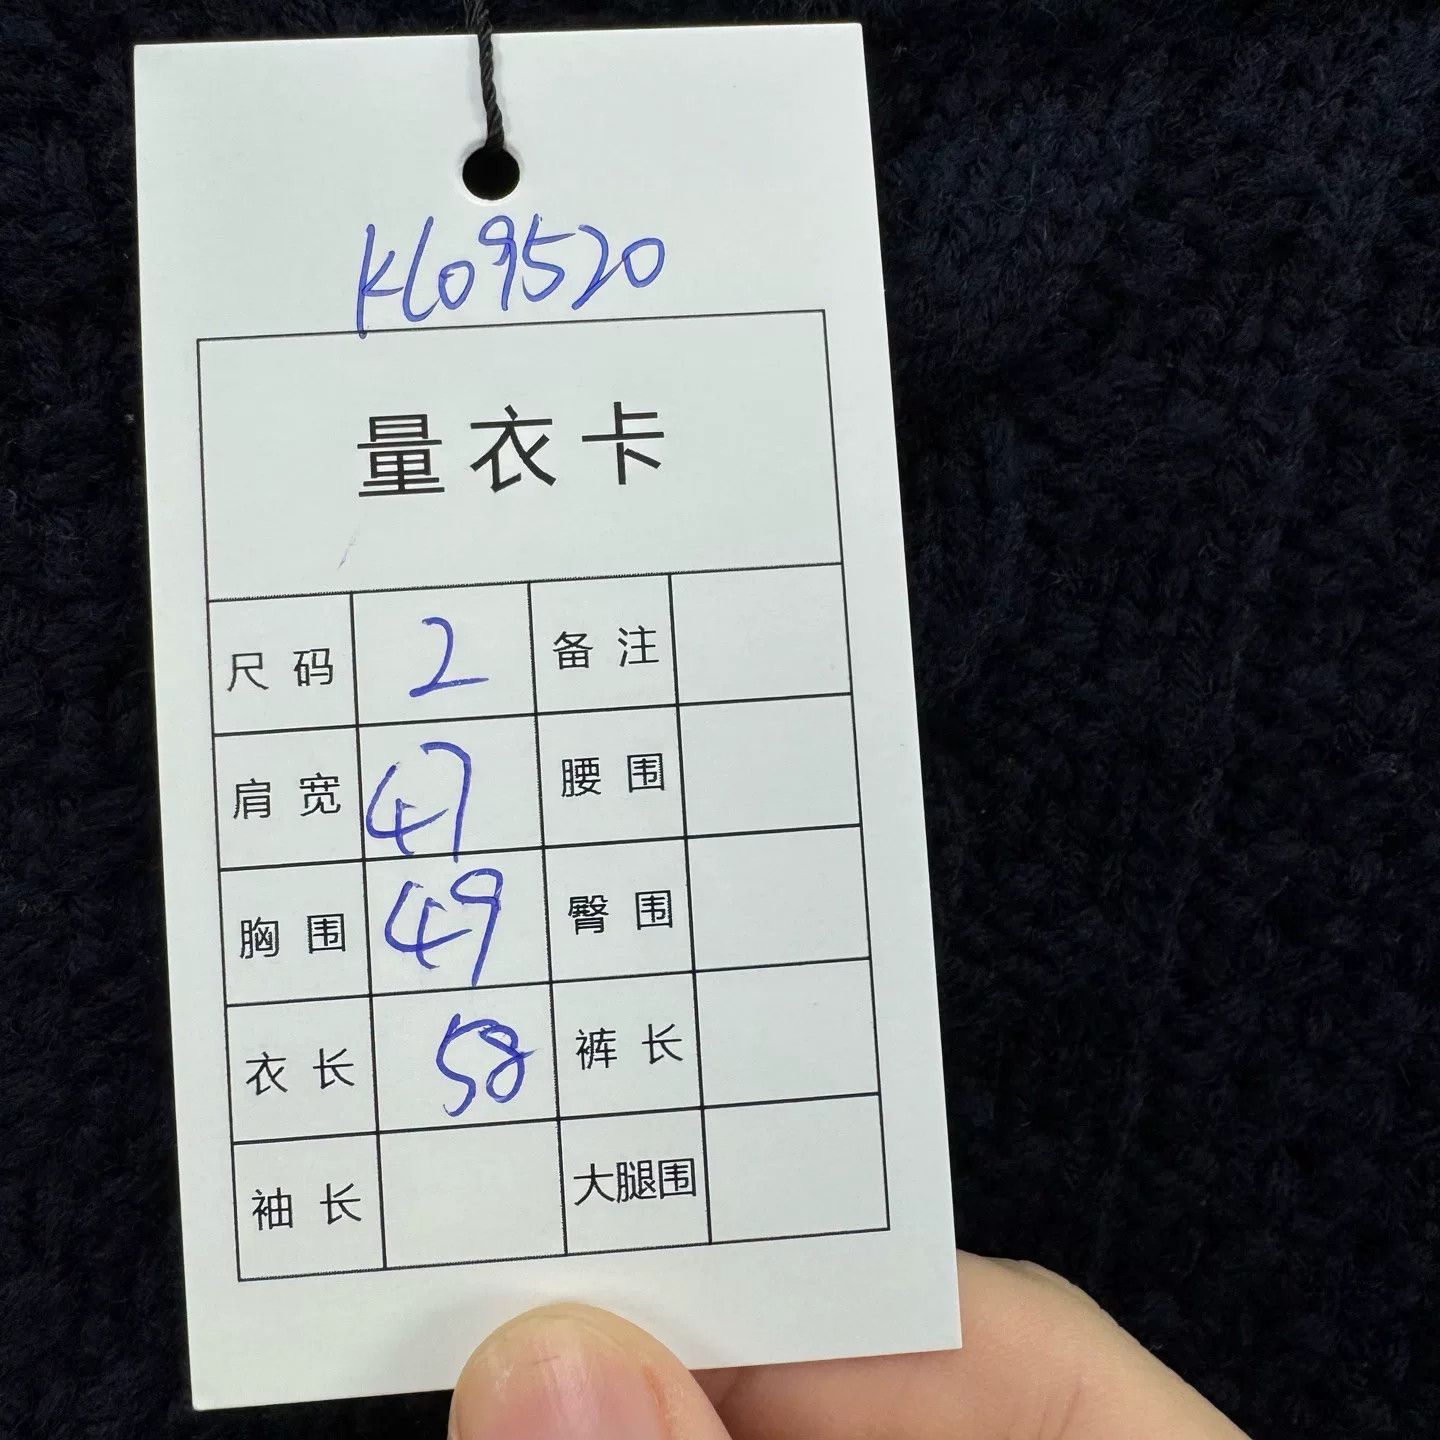 K609520
量衣卡
尺码 2 备注
肩宽 47 腰围
胸围 49 臀围
衣长 58 裤长
袖长 大腿围